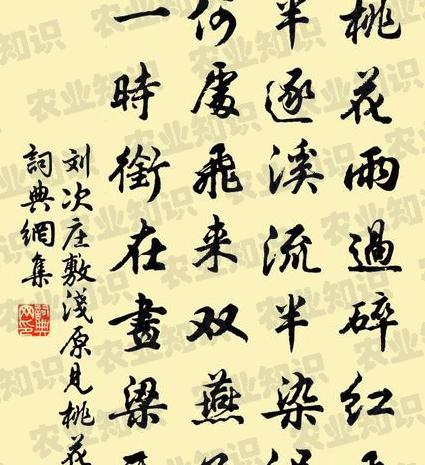 桃花雨過碎紅
半逐溪流半染
何處飛来双燕
一時銜在畫梁
刘次庄敷淺原見桃花
詞典網集
农业知识